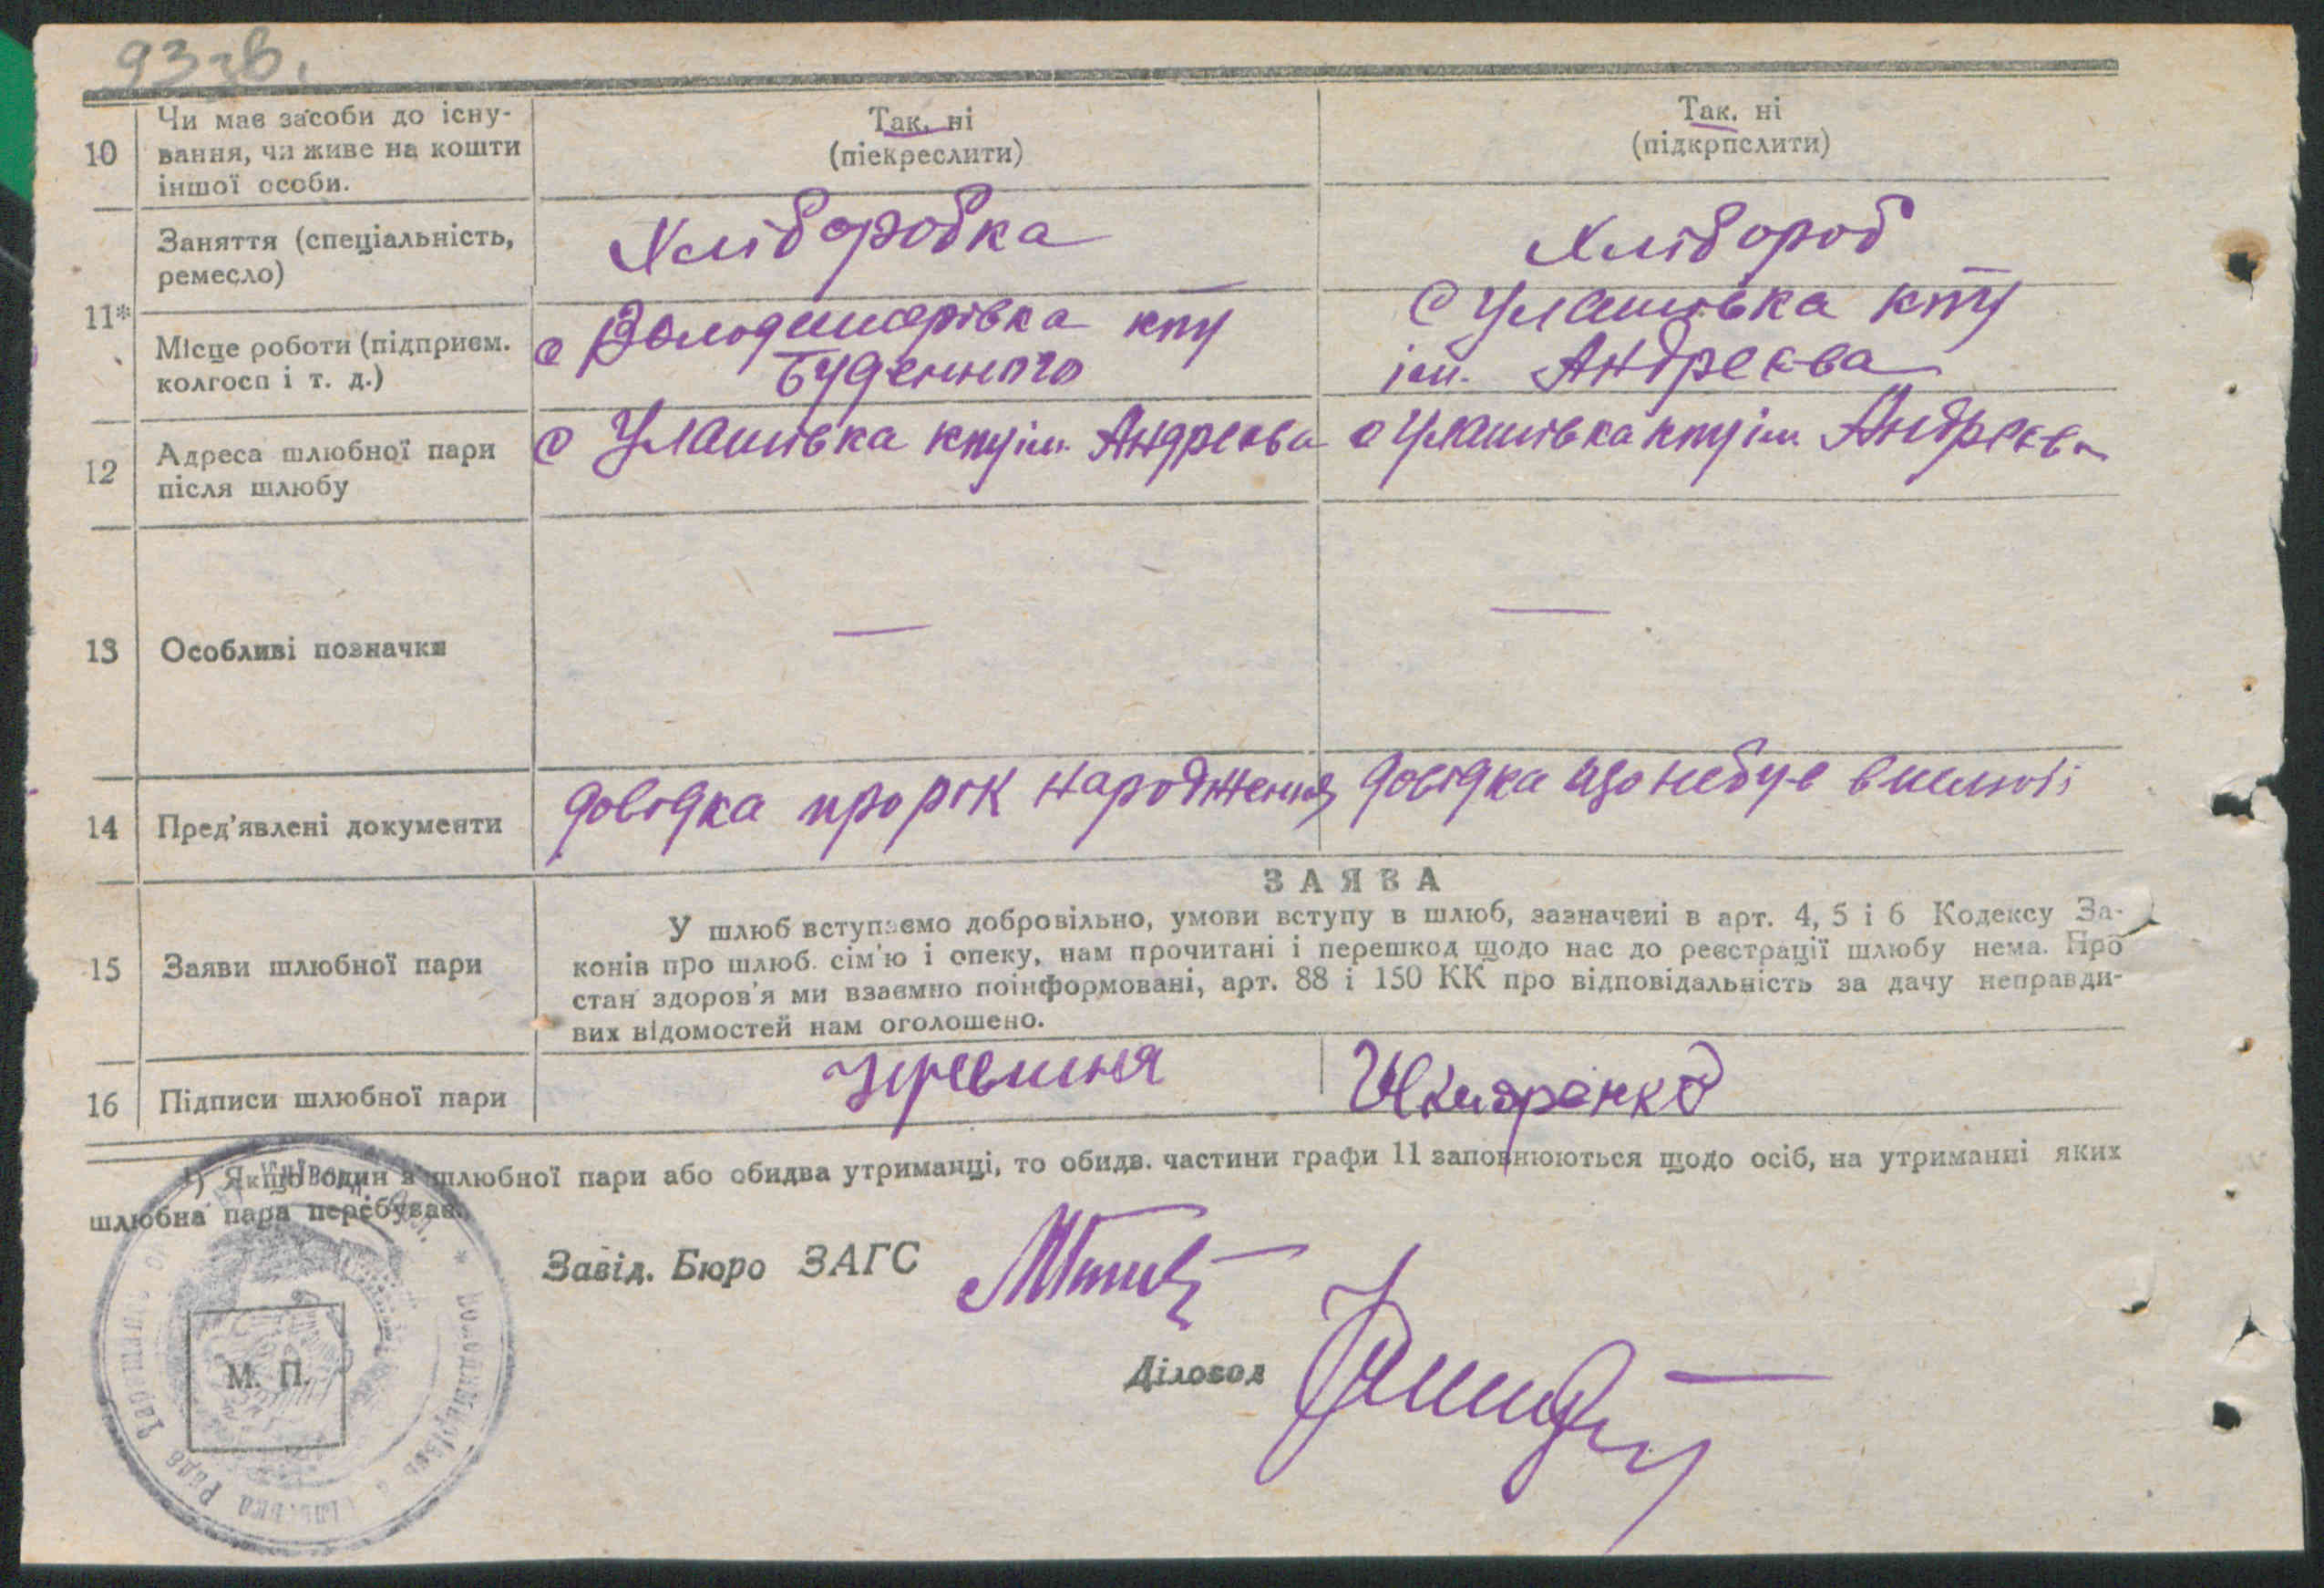 93зв.
10
Чи має засоби до існу-
вання, чи живе на кошти
іншої особи.
Так, ні
(піекреслити)
Так, ні
(підкрпслити)
11*
Заняття (спеціальність,
ремесло)
Хліборобка
Хлібороб
Місце роботи (підприєм.
колгосп і т. д.)
с Володимирівка кпу
Буденного
с Улашівка кпу
ім. Андреєва
12
Адреса шлюбної пари
після шлюбу
с Улашівка кпу ім. Андреєва
с Улашівка кпу ім Андреєва
13
Особливі позначки
14
Пред'явлені документи
довідка про рік народження
довідка що небув в шлюбі
ЗАЯВА
15
Заяви шлюбної пари
У шлюб вступаємо добровільно, умови вступу в шлюб, зазначені в арт. 4, 5 і 6 Кодексу За-
конів про шлюб. сім'ю і опеку, нам прочитані і перешкод щодо нас до реєстрації шлюбу нема. Про
стан здоров'я ми взаємно поінформовані, арт. 88 і 150 КК про відповідальність за дачу неправди-
вих відомостей нам оголошено.
16
Підписи шлюбної пари
Шкляренко
*) Якщо один з шлюбної пари або обидва утриманці, то обидв. частини графи 11 заповнюються щодо осіб, на утриманні яких
шлюбна пара перебуває.
Завід. Бюро ЗАГС
Діловод
М. П.